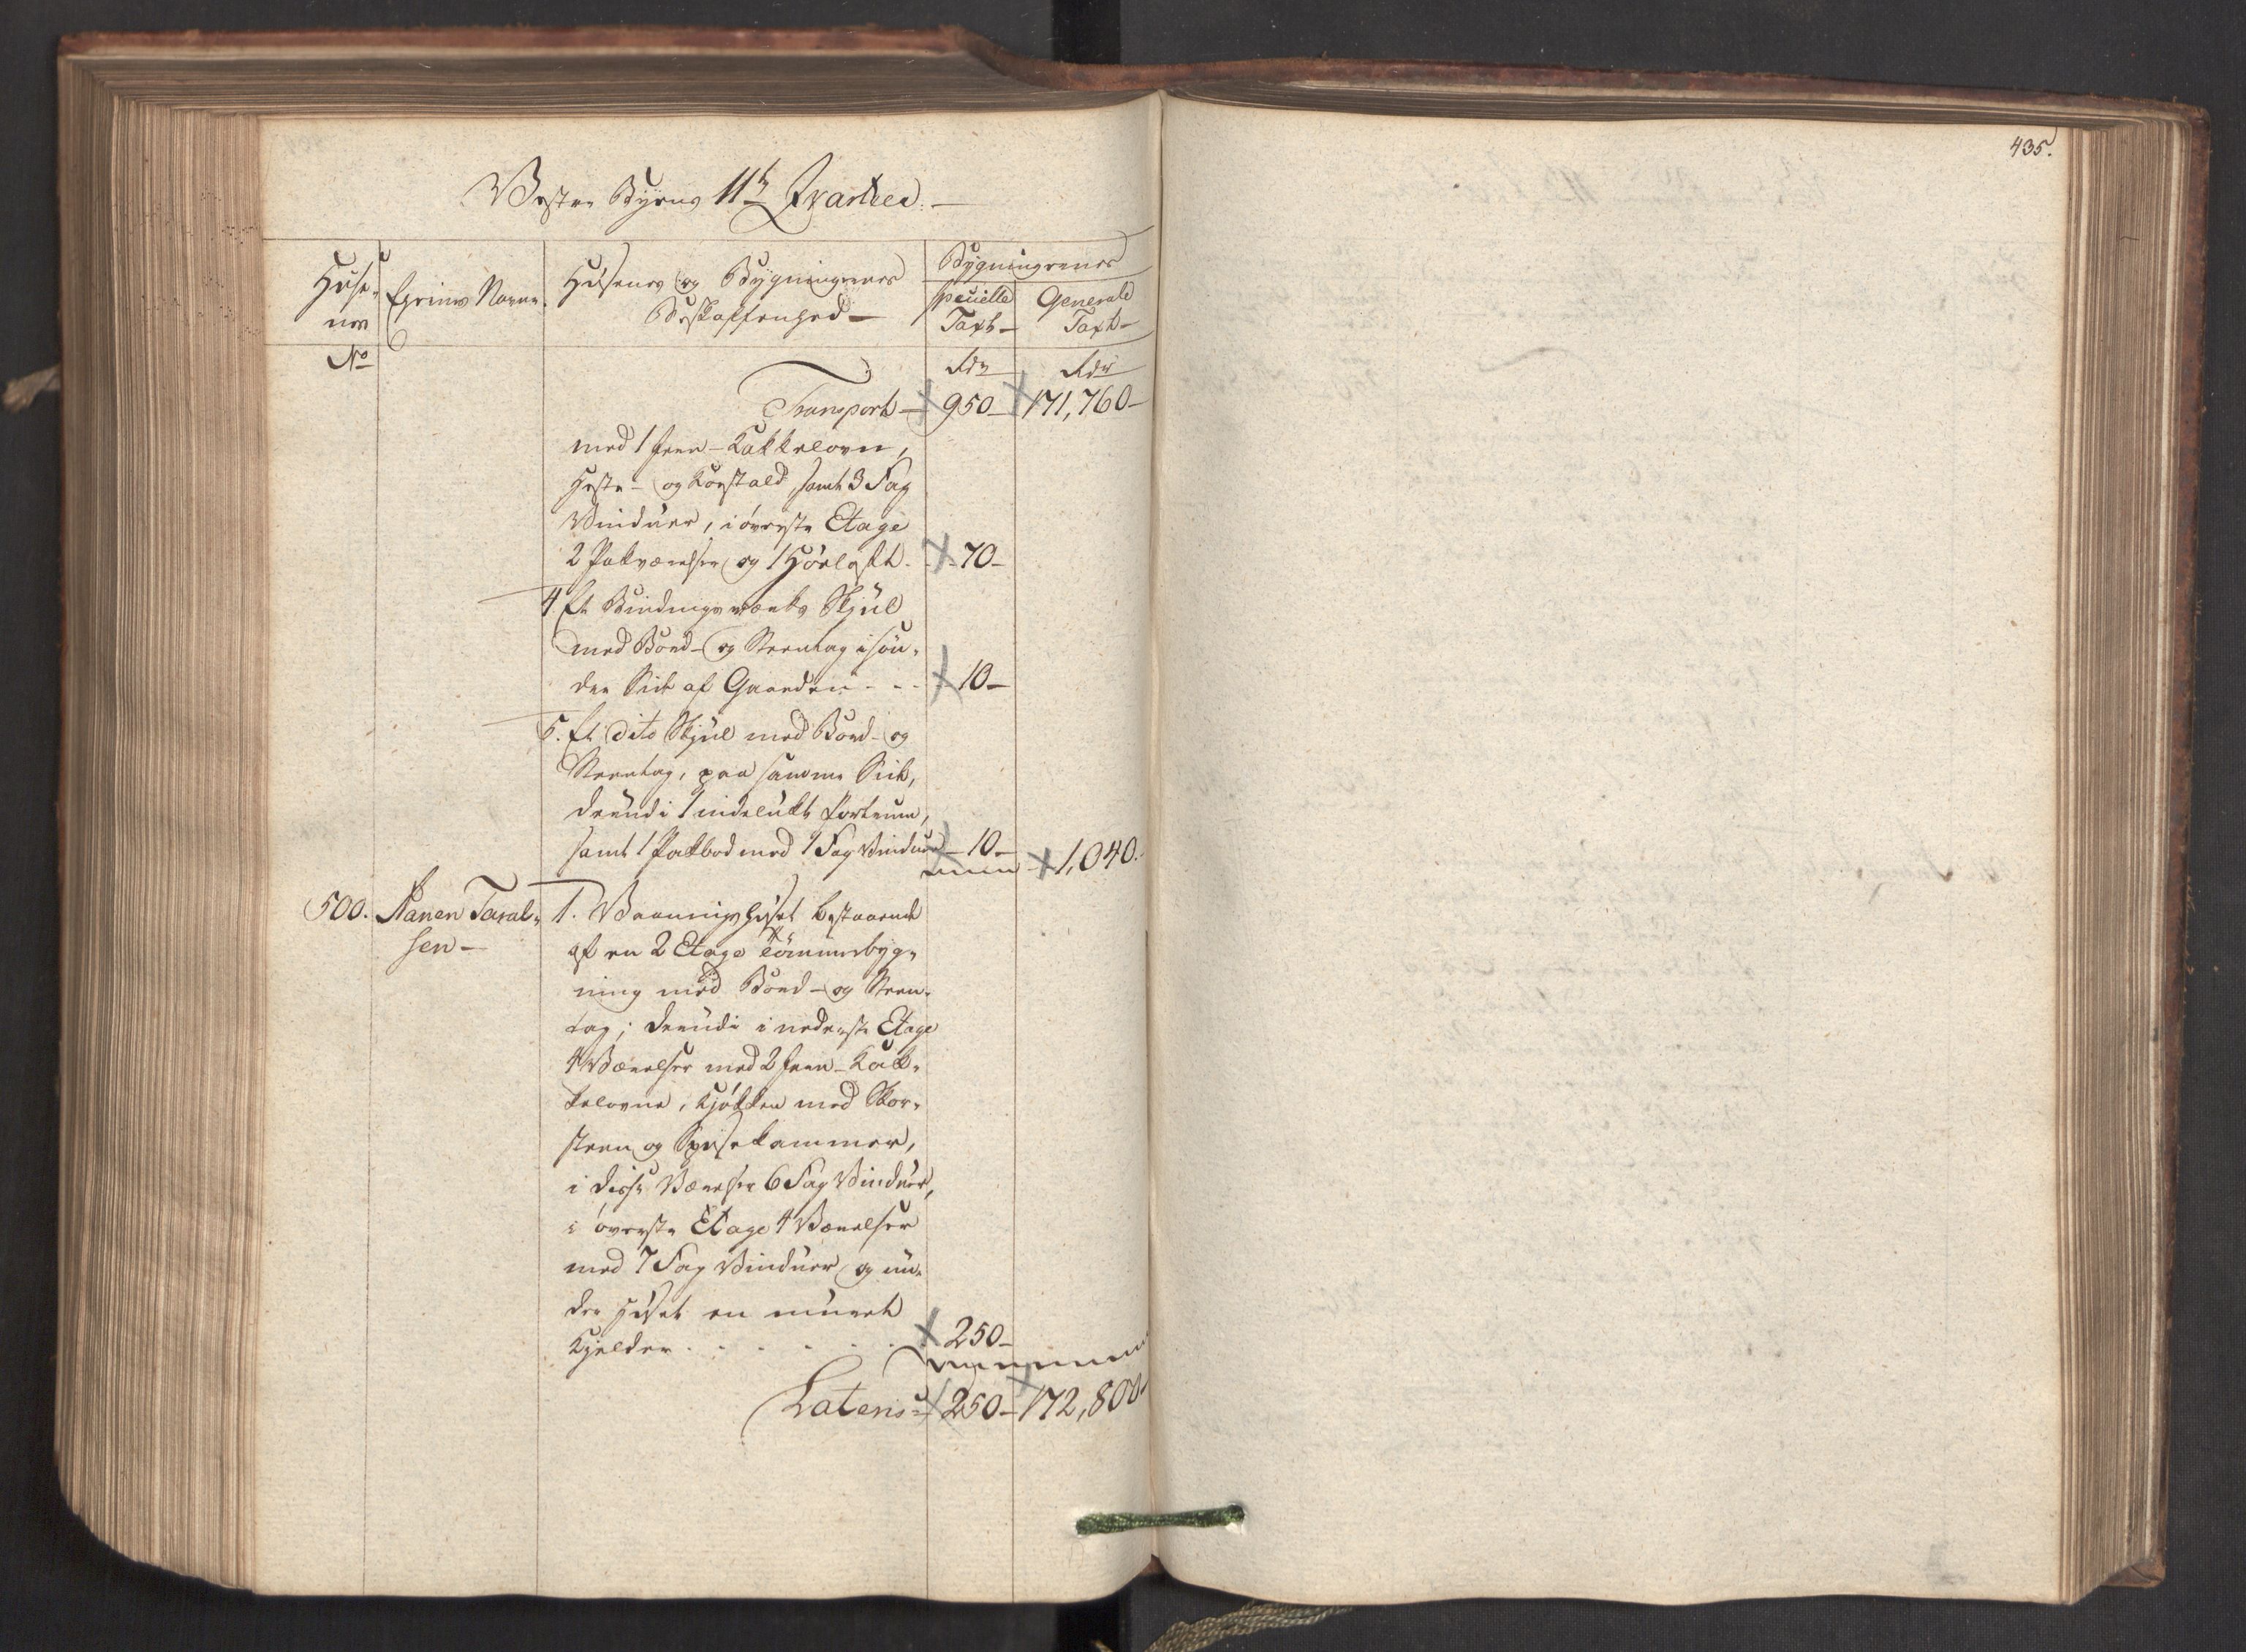 435.
Vestre Byens 11te Qvarteer. —
Huse-
nes
No
Eyernes Navne.
Husenes og Bygningernes
Beskaffenhed —
Bygningernes
specielle
Taxt —
Generale
Taxt —
Rdr
Rdr
Transport — 950 — 171,760 —
med 1 Jern-Kakkelovn,
Heste- og Koestald, samt 3 Fag
Vinduer, i øverste Etage
2 Pakværelser og 1 Høeloft. 70 —
4. Et Bindingsværks Skjul
med Bord- og Steentag i søn-
dre Side af Gaarden - - - 10 —
5. Et dito Skjul med Bord- og
Steentag, paa samme Side,
derudi 1 indelukt Portrum,
samt 1 Pakbod med 1 Fag Vinduer — 10 — 1,040.
500. Aanen Taral-
sen —
1. Vaaningshuset bestaaende
af en 2 Etage Tømmerbyg-
ning med Bord- og Steen-
tag; derudi i nederste Etage
4 Værelser med 2 Jern-Kak-
kelovne, Kjøkken med Skor-
steen og Spisekammer,
i disse Værelser 6 Fag Vinduer,
i øverste Etage 4 Værelser
med 7 Fag Vinduer og un-
der Huset en muret
Kjelder - - - - - - 250 —
Lateris 250 — 172,800